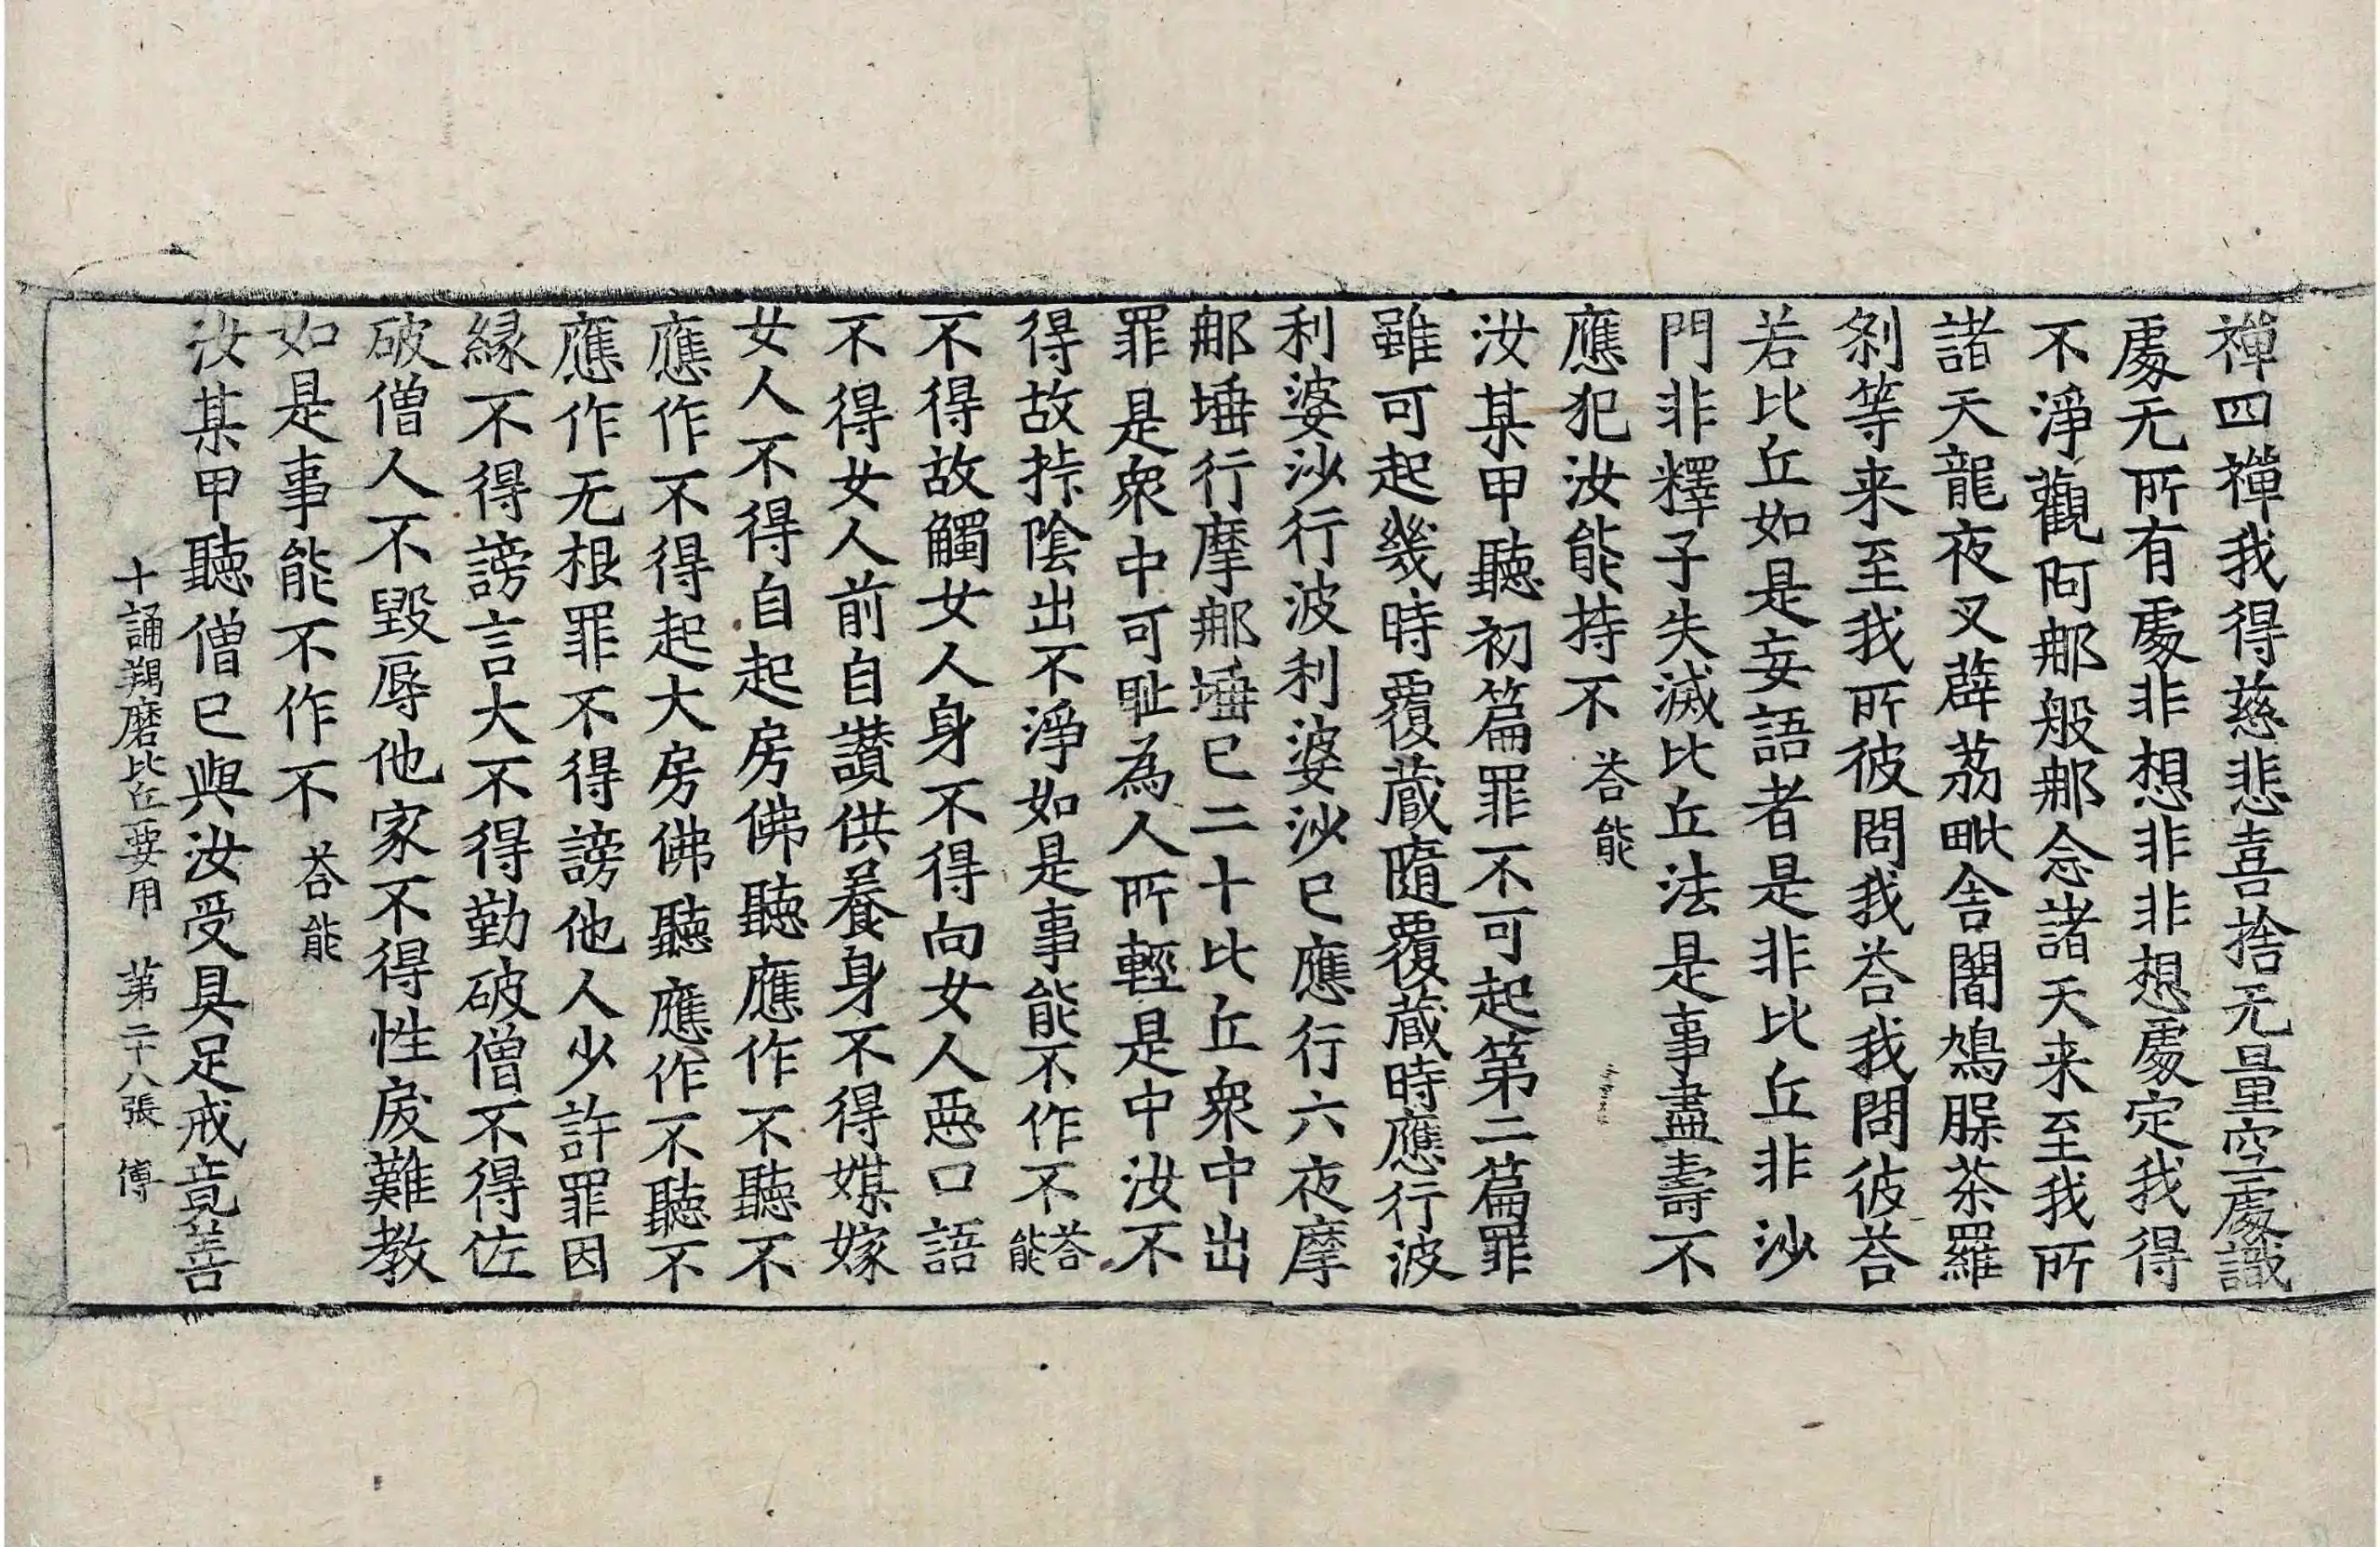 禅四禅我得慈悲喜捨无量空處識
處无所有處非想非非想處定我得
不淨觀阿𨙻般𨙻念諸天来至我所
諸天龍夜叉薜荔毗舍闍鳩腬茶羅
刹等来至我所彼問我荅我問彼荅
若比丘如是妄語者是非比丘非沙
門非釋子失滅比丘法是事盡壽不
應犯汝能持不荅能
汝某甲聽初篇罪不可起第二篇罪
雖可起幾時覆蔵隨覆蔵時應行波
利婆沙行波利婆沙已應行六夜摩
𨙻埵行摩𨙻埵已二十比丘衆中出
罪是衆中可耻為人所輕是中汝不
得故挊陰出不淨如是事能不作不荅能
不得故觸女人身不得向女人惡口語
不得女人前自讃供養身不得媒嫁
女人不得自起房佛聽應作不聽不
應作不得起大房佛聽應作不聽不
應作无根罪不得謗他人少許罪因
縁不得謗言大不得勤破僧不得佐
破僧人不毀辱他家不得性戾難教
如是事能不作不荅能
汝某甲聽僧已與汝受具足戒竟善
十誦羯磨比丘要用 第二十八張 傅